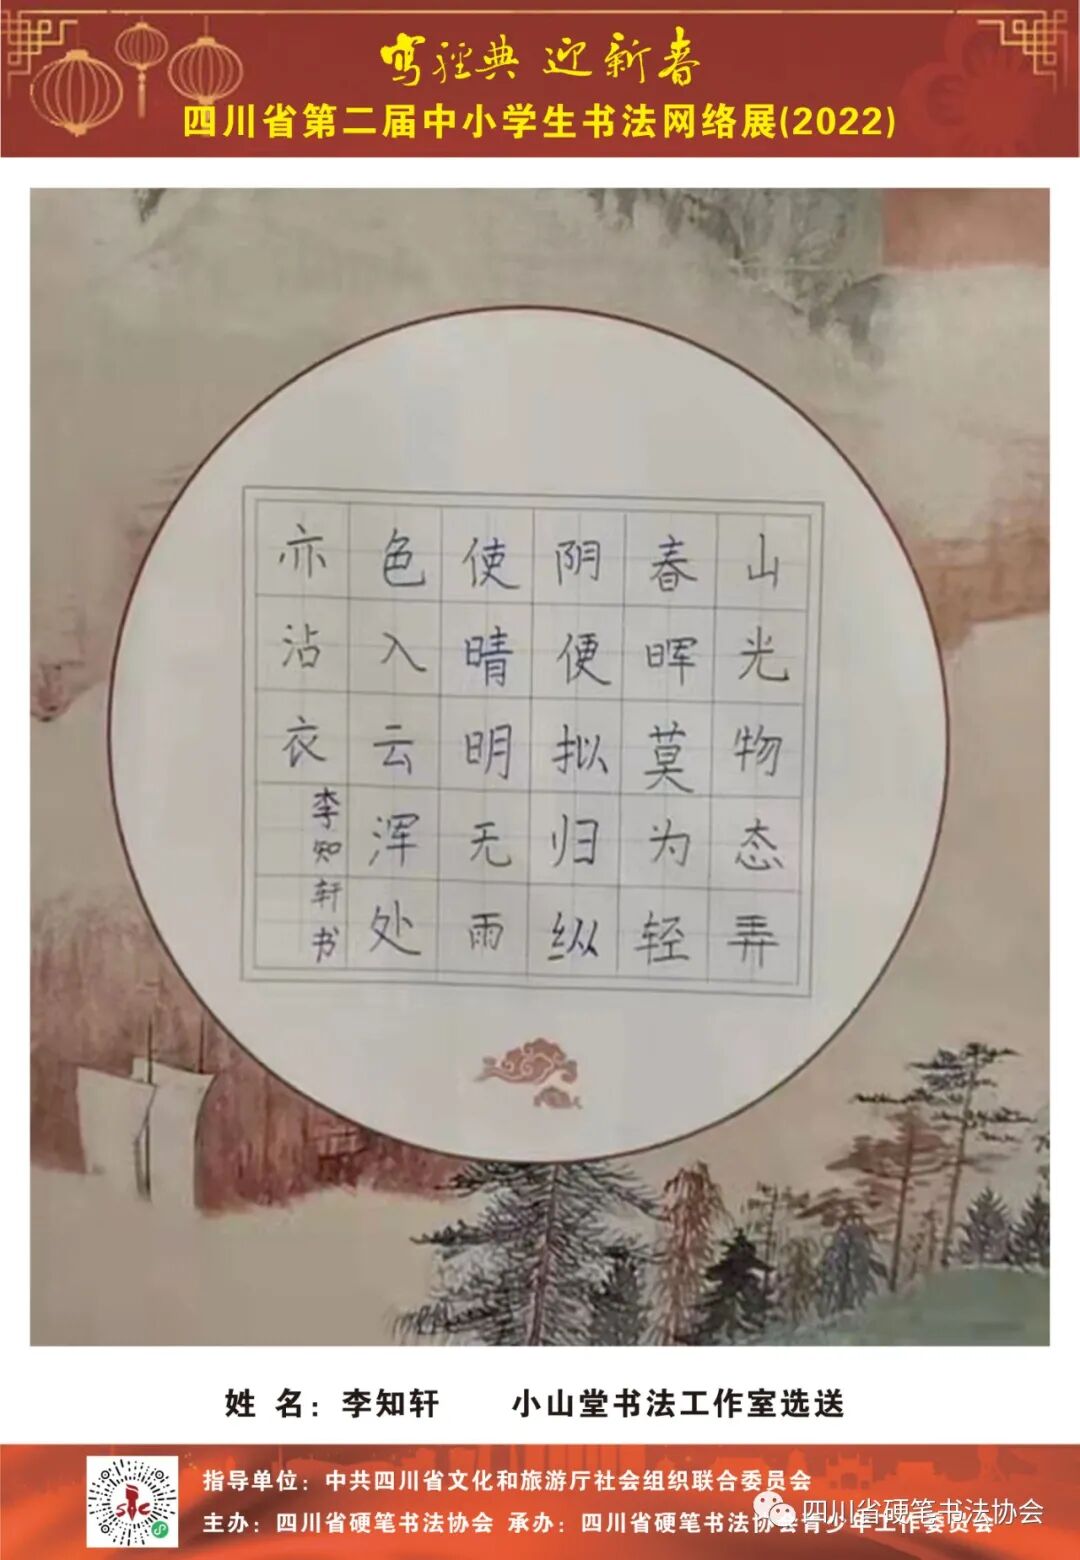 写经典 迎新春
四川省第二届中小学生书法网络展(2022)
山光物态弄
春晖莫为轻
阴便拟归纵
使晴明无雨
色入云浑处
亦沾衣
李知轩书
姓 名：李知轩 小山堂书法工作室选送
指导单位：中共四川省文化和旅游厅社会组织联合委员会
主办：四川省硬笔书法协会 承办：四川省硬笔书法协会青少年工作委员会
四川省硬笔书法协会